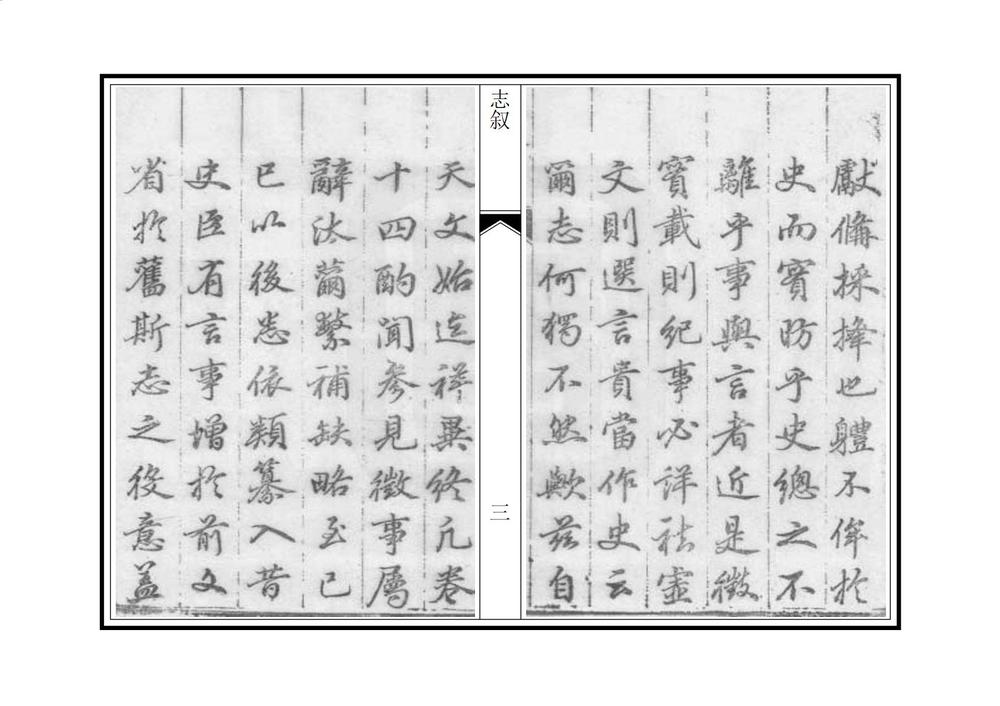 獻備採擇也體不侔於
史而實昉乎史總之不
離乎事與言者近是徵
實載則紀事必詳祛虛
文則選言貴當作史云
爾志何獨不然歟茲自
志叙
三
天文始迄祥異終凡卷
十四酌聞參見徵事屬
辭汰繭繁補缺略至已
已以後悉依類纂入昔
史臣有言事增於前文
省於舊斯志之後意蓋